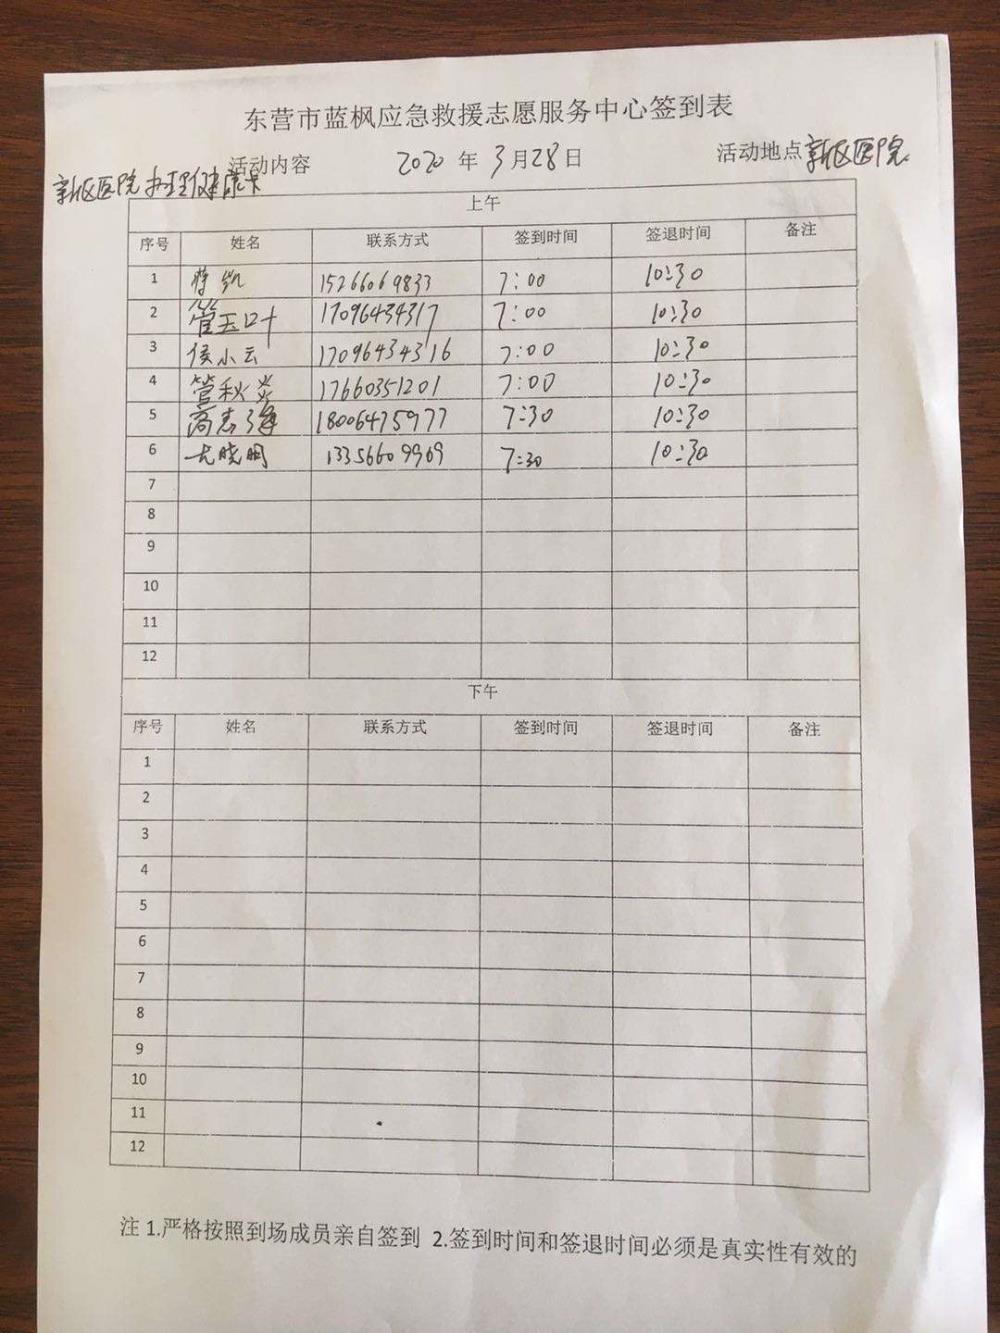 东营市蓝枫应急救援志愿服务中心签到表
活动内容 2020 年 3 月 28 日 活动地点 新区医院
新区医院办理健康卡
上午
序号 姓名 联系方式 签到时间 签退时间 备注
1 蒋凯 15266069833 7:00 10:30
2 管玉叶 17096434317 7:00 10:30
3 侯小云 17096434316 7:00 10:30
4 管秋炎 17660351201 7:00 10:30
5 高志强 18006475977 7:30 10:30
6 尤晓明 13356609969 7:30 10:30
7
8
9
10
11
12
下午
序号 姓名 联系方式 签到时间 签退时间 备注
1
2
3
4
5
6
7
8
9
10
11
12
注 1.严格按照到场成员亲自签到 2.签到时间和签退时间必须是真实性有效的